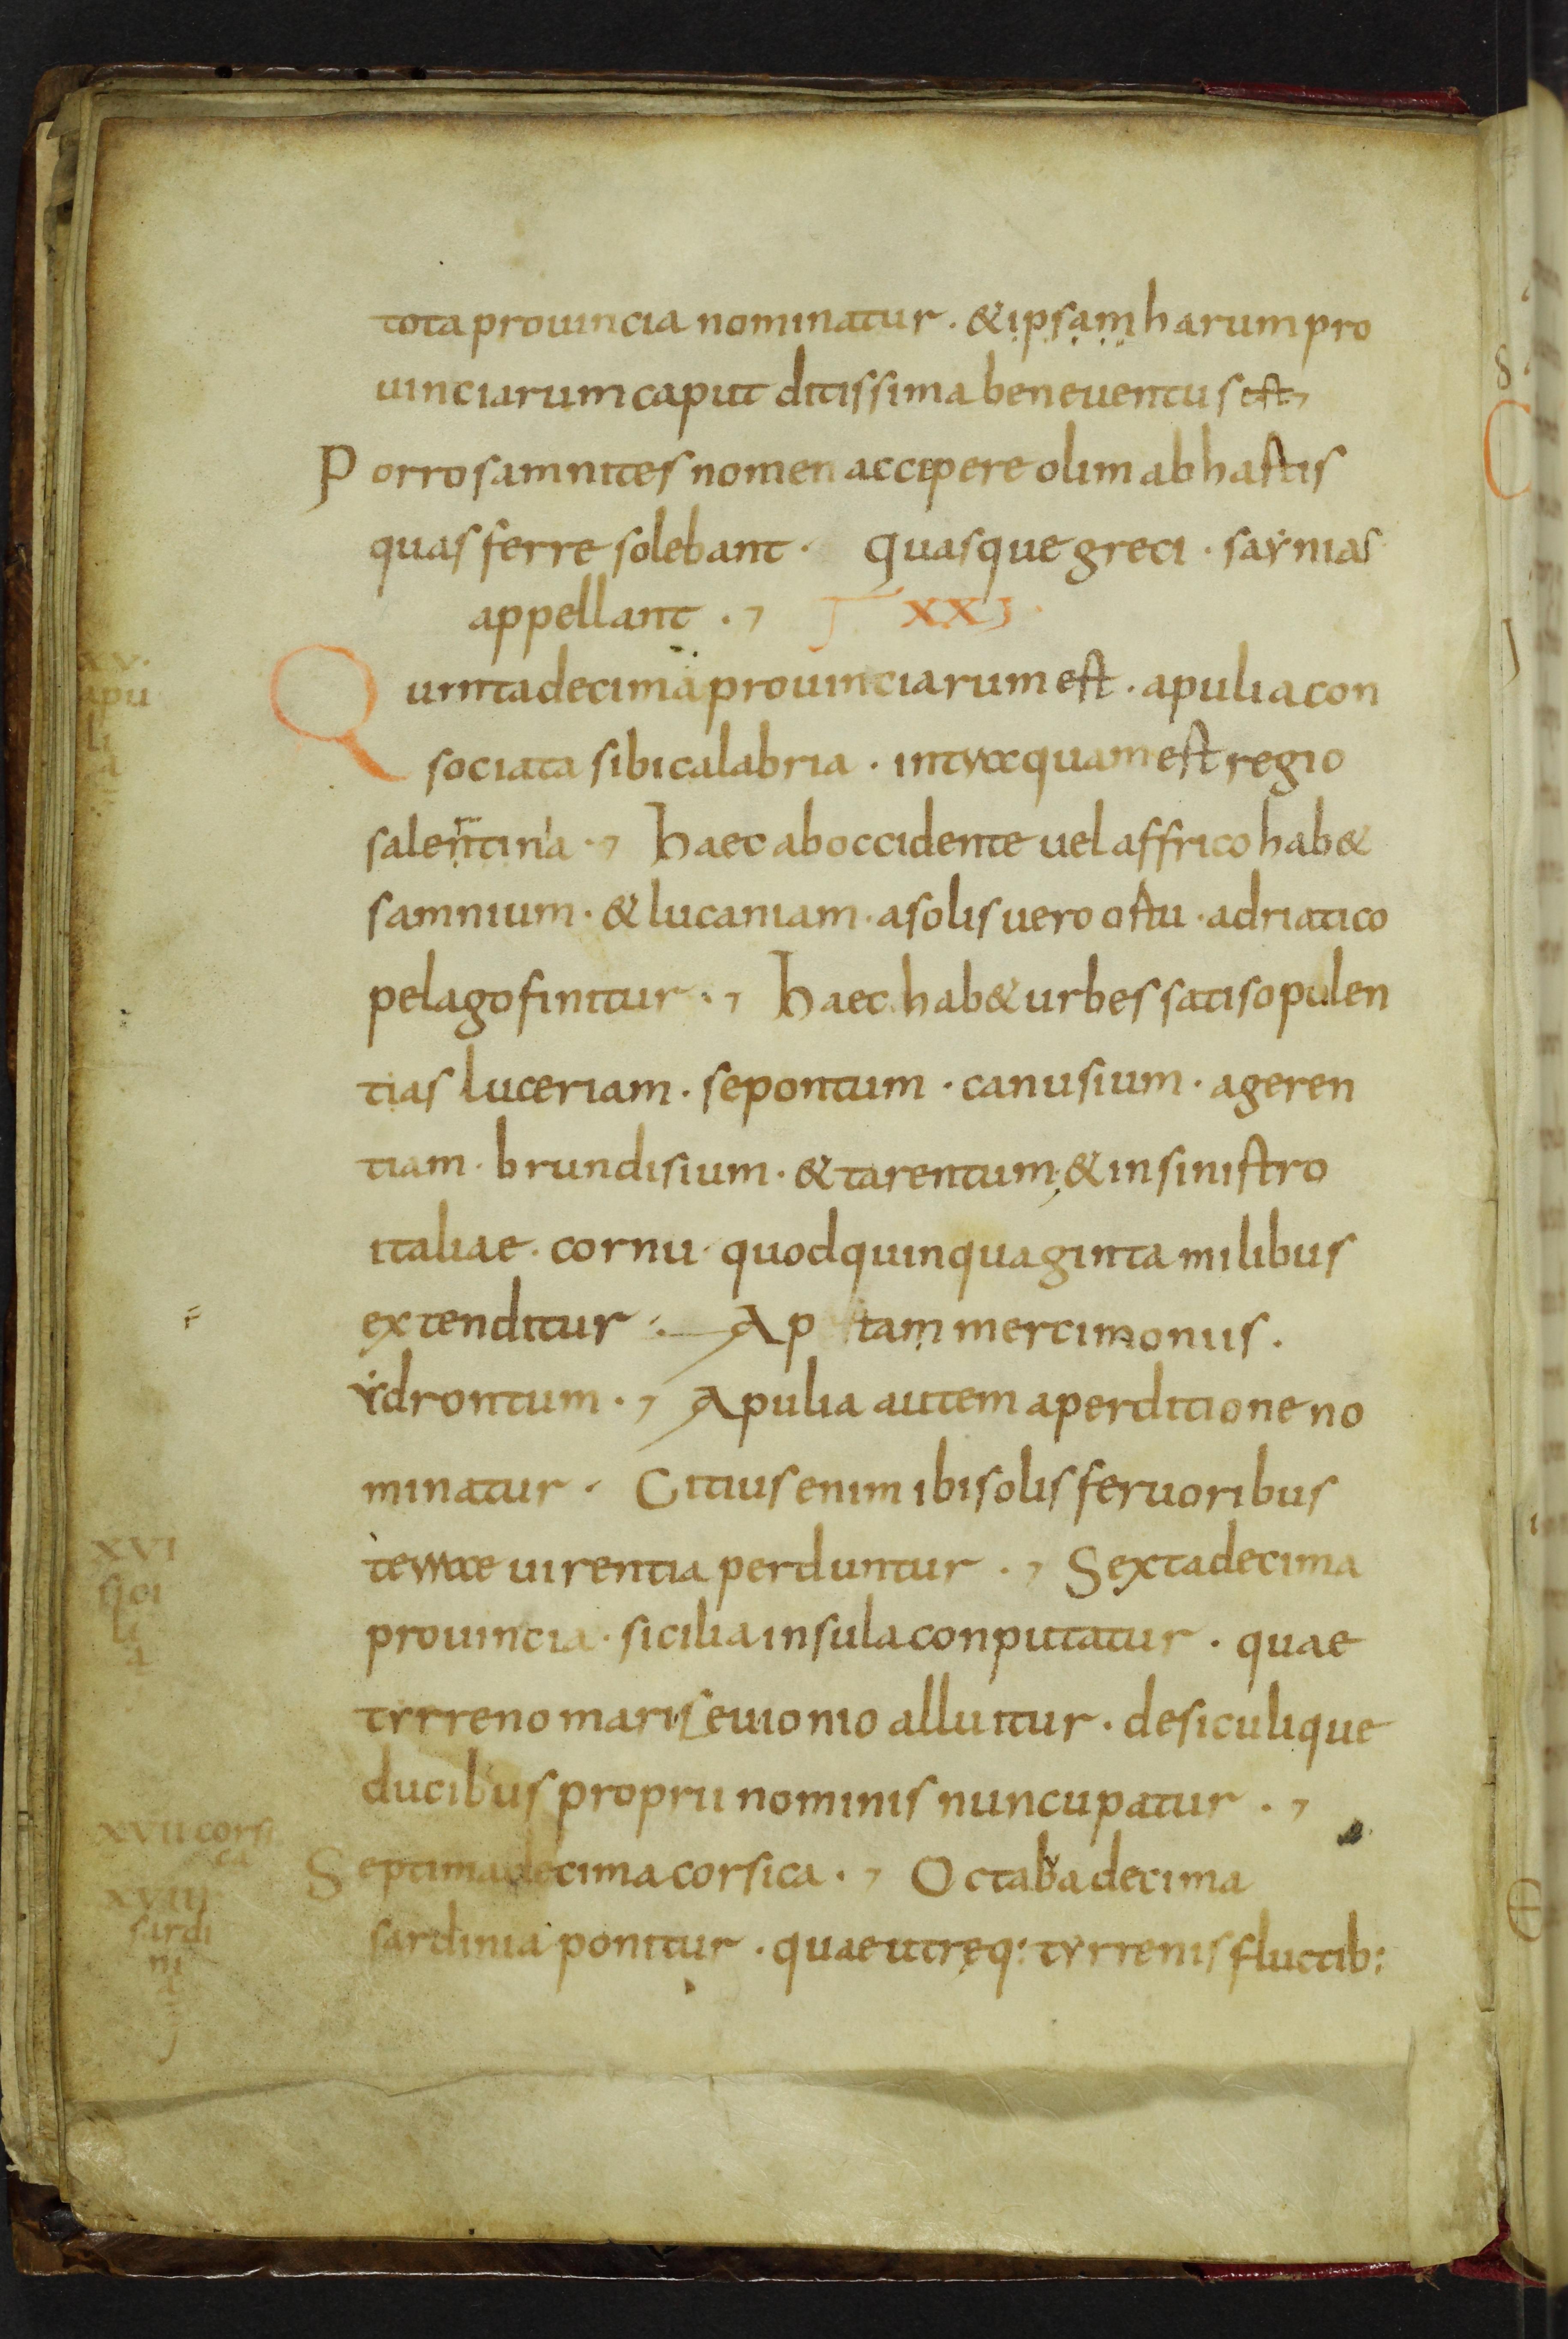 tota prouincia nominatur · & ipsam harum pro
uinciarum caput ditissima beneuentus est,
Porro samnites nomen accepere olim ab hastis
quas ferre solebant · quasque greci · saẏnias
appellant · , XXI ·
XV · apu li a
Quinta decima prouinciarum est · apulia con
sociata sibi calabria · intra quam est regio
salentina · , haec ab occidente uel affrico hab&
samnium · & lucaniam · a solis uero ostu · adriatico
pelago finitur · , haec hab& urbes satis opulen
tias luceriam · sepontum · canusium · ageren
tiam · brundisium · & tarentum ; & in sinistro
italiae · cornu · quod quinquaginta milibus
extenditur · Ap tam mercimoniis ·
ẏdrontum · , Apulia autem a perditione no
minatur · Citius enim ibi solis feruoribus
terrae uirentia perduntur · , Sexta decima
XVI sici li a
prouincia · sicilia insula conputatur · quae
tyrreno mari seu ionio alluitur · de siculique
ducibus proprii nominis nuncupatur · ,
XVII corsi ca
Septima decima corsica · , Octaba decima
XVIII sardi ni a
sardinia ponitur · quae utreq: tyrrenis fluctib: